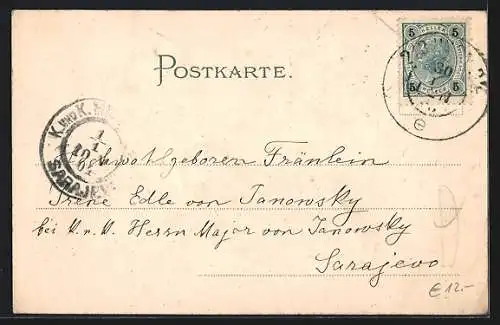 5 5
POSTKARTE.
5 5
K. UND K.
1
SARAJEVO
Hochwohlgeboren Fräulein
Irene Edle von Janowsky
bei K. u. K. Herrn Major von Janowsky
Sarajevo
€12.-